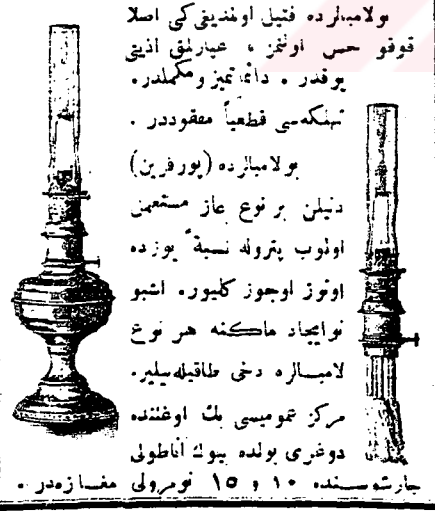 بو لامبالرده فتيل اولمديغی كی اصلا
قوقو حس اولنمز ، عيارلمق اذيتی
يوقدر . دائما تميز و مكملدر .
تهلكه سی قطعياً مفقوددر .
بو لامبالرده (پورفرين)
دنيلن بر نوع غاز مستعمل
اولوب پتروله نسبةً يوزده
اوتوز اوجوز كليور . اشبو
نو ايجاد ماكنه هر نوع
لامبالره دخی طاقيله بيلير .
مركز عموميسی بك اوغلنده
دوغری يولده بيوك اناطولی
چارشوسنده ١٠ و ١٥ نومرولی مغازه در .